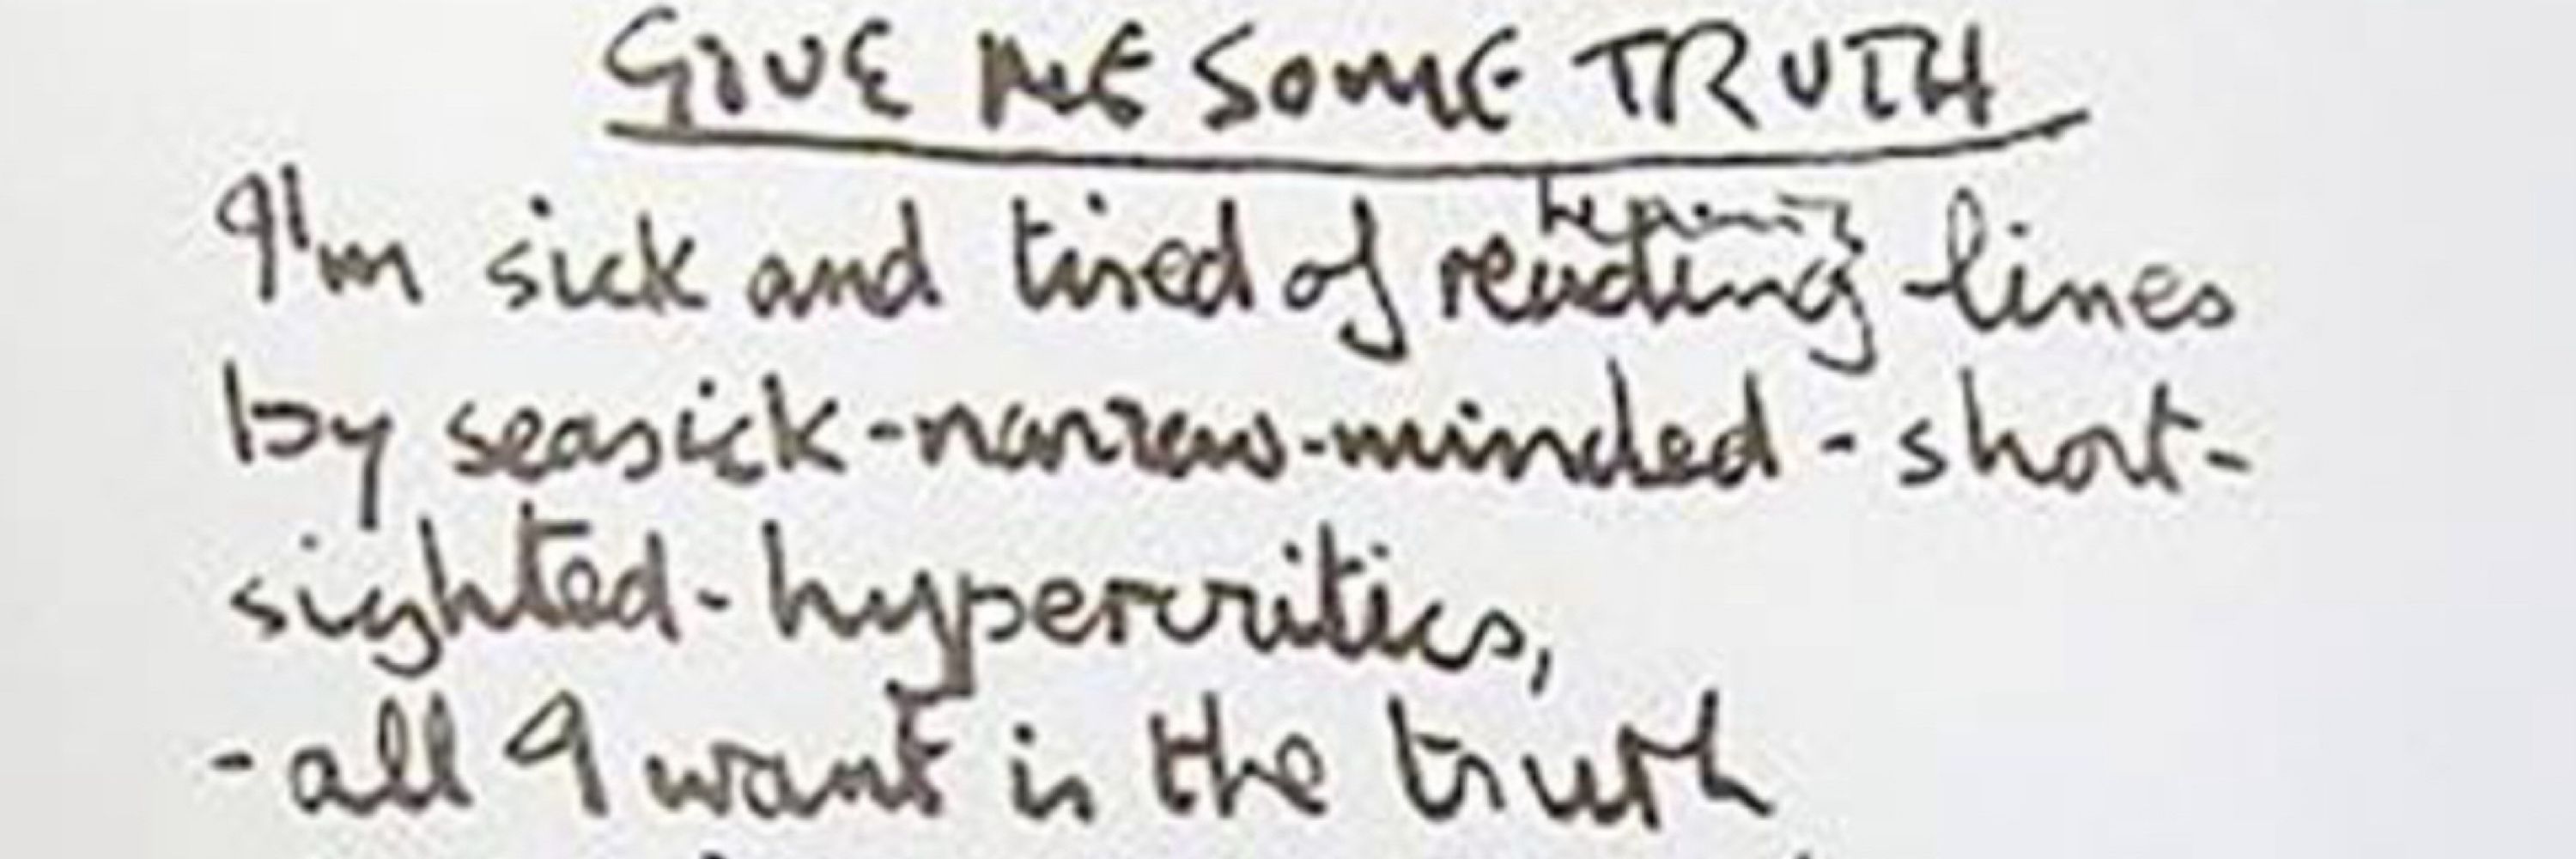 GIVE ME SOME TRUTH
I'm sick and tired of reading lines
by seasick-narrow-minded-short-
sighted-hypercritics,
-all I want is the truth